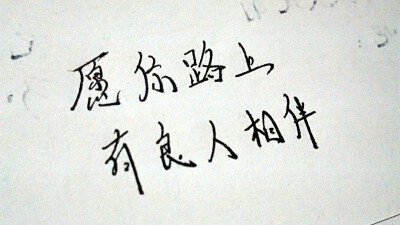 愿你路上
有良人相伴